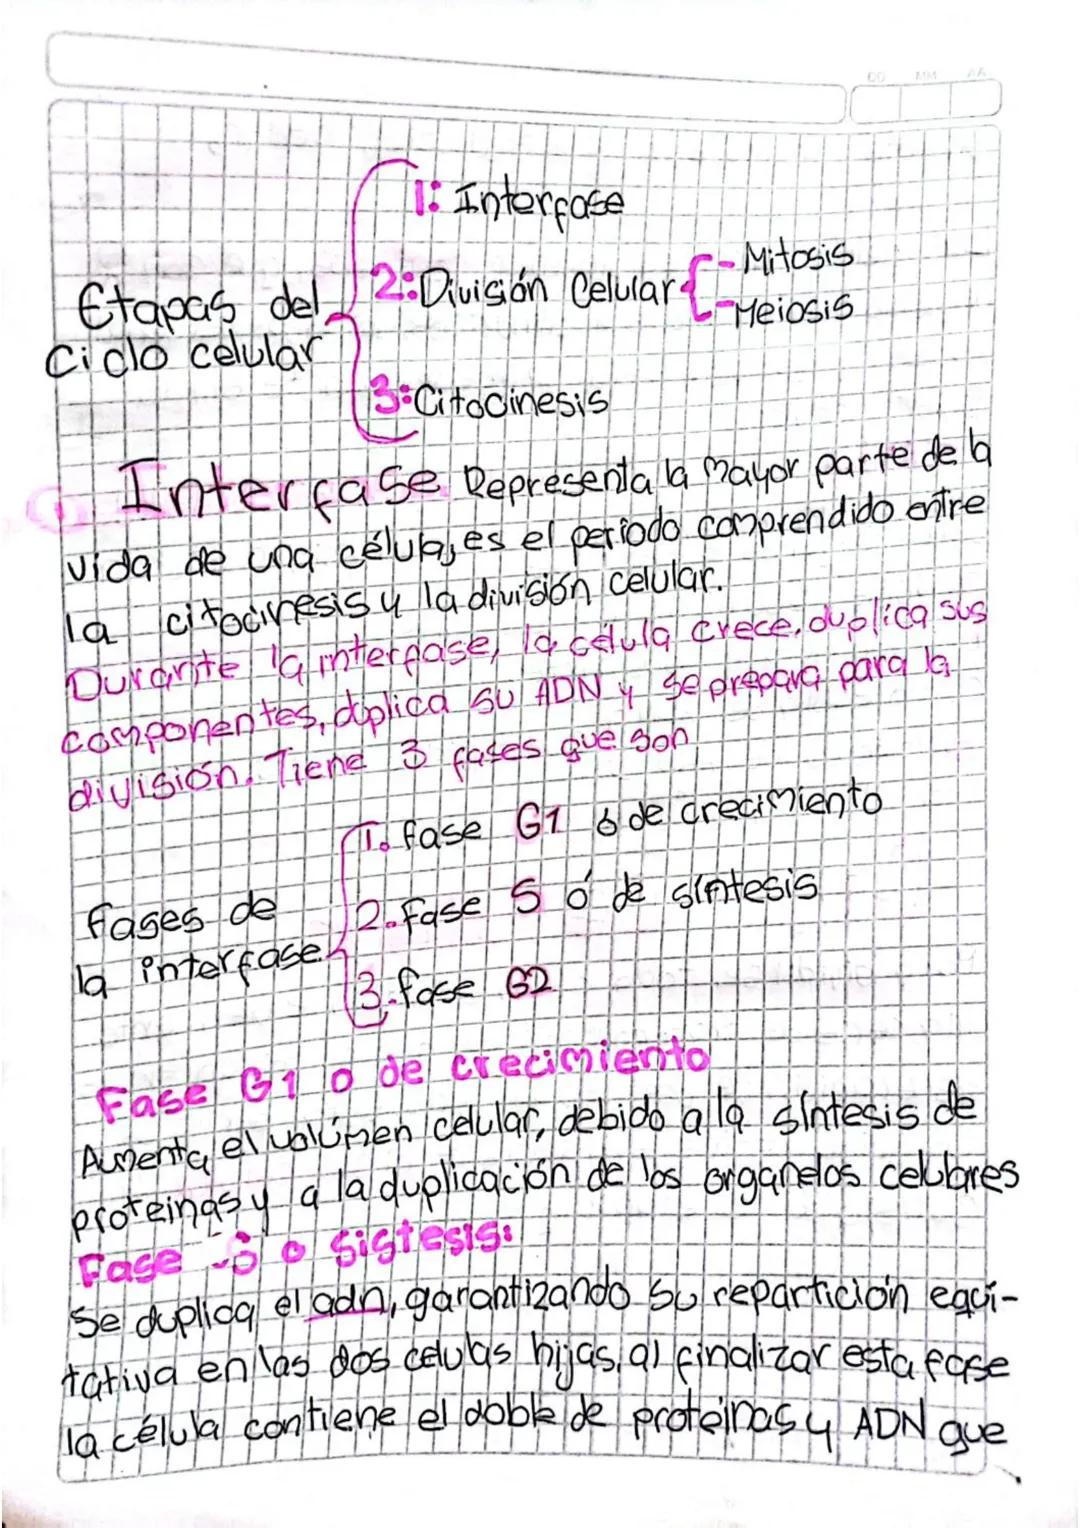 DD MM AA
1: Interfase
2: División Celular { - Mitosis
- Meiosis
Etapas del
Ciclo celular
3: Citocinesis
1 Interfase Representa la mayor parte de la
vida de una célula, es el periodo comprendido entre
la citocinesis y la división celular.
Durante la interfase, la célula crece, duplica sus
componentes, duplica su ADN y se prepara para la
división. Tiene 3 fases que son
1. fase G1 ó de crecimiento
fases de
la interfase
2. fase S ó de síntesis
3. fase G2
Fase G1 o de crecimiento
Aumenta el volúmen celular, debido a la síntesis de
proteinas y a la duplicación de los organelos celulares
Fase S o Sistesis:
Se duplica el adn, garantizando su repartición equi-
tativa en las dos celulas hijas, al finalizar esta fase
la célula contiene el doble de proteinas y ADN que